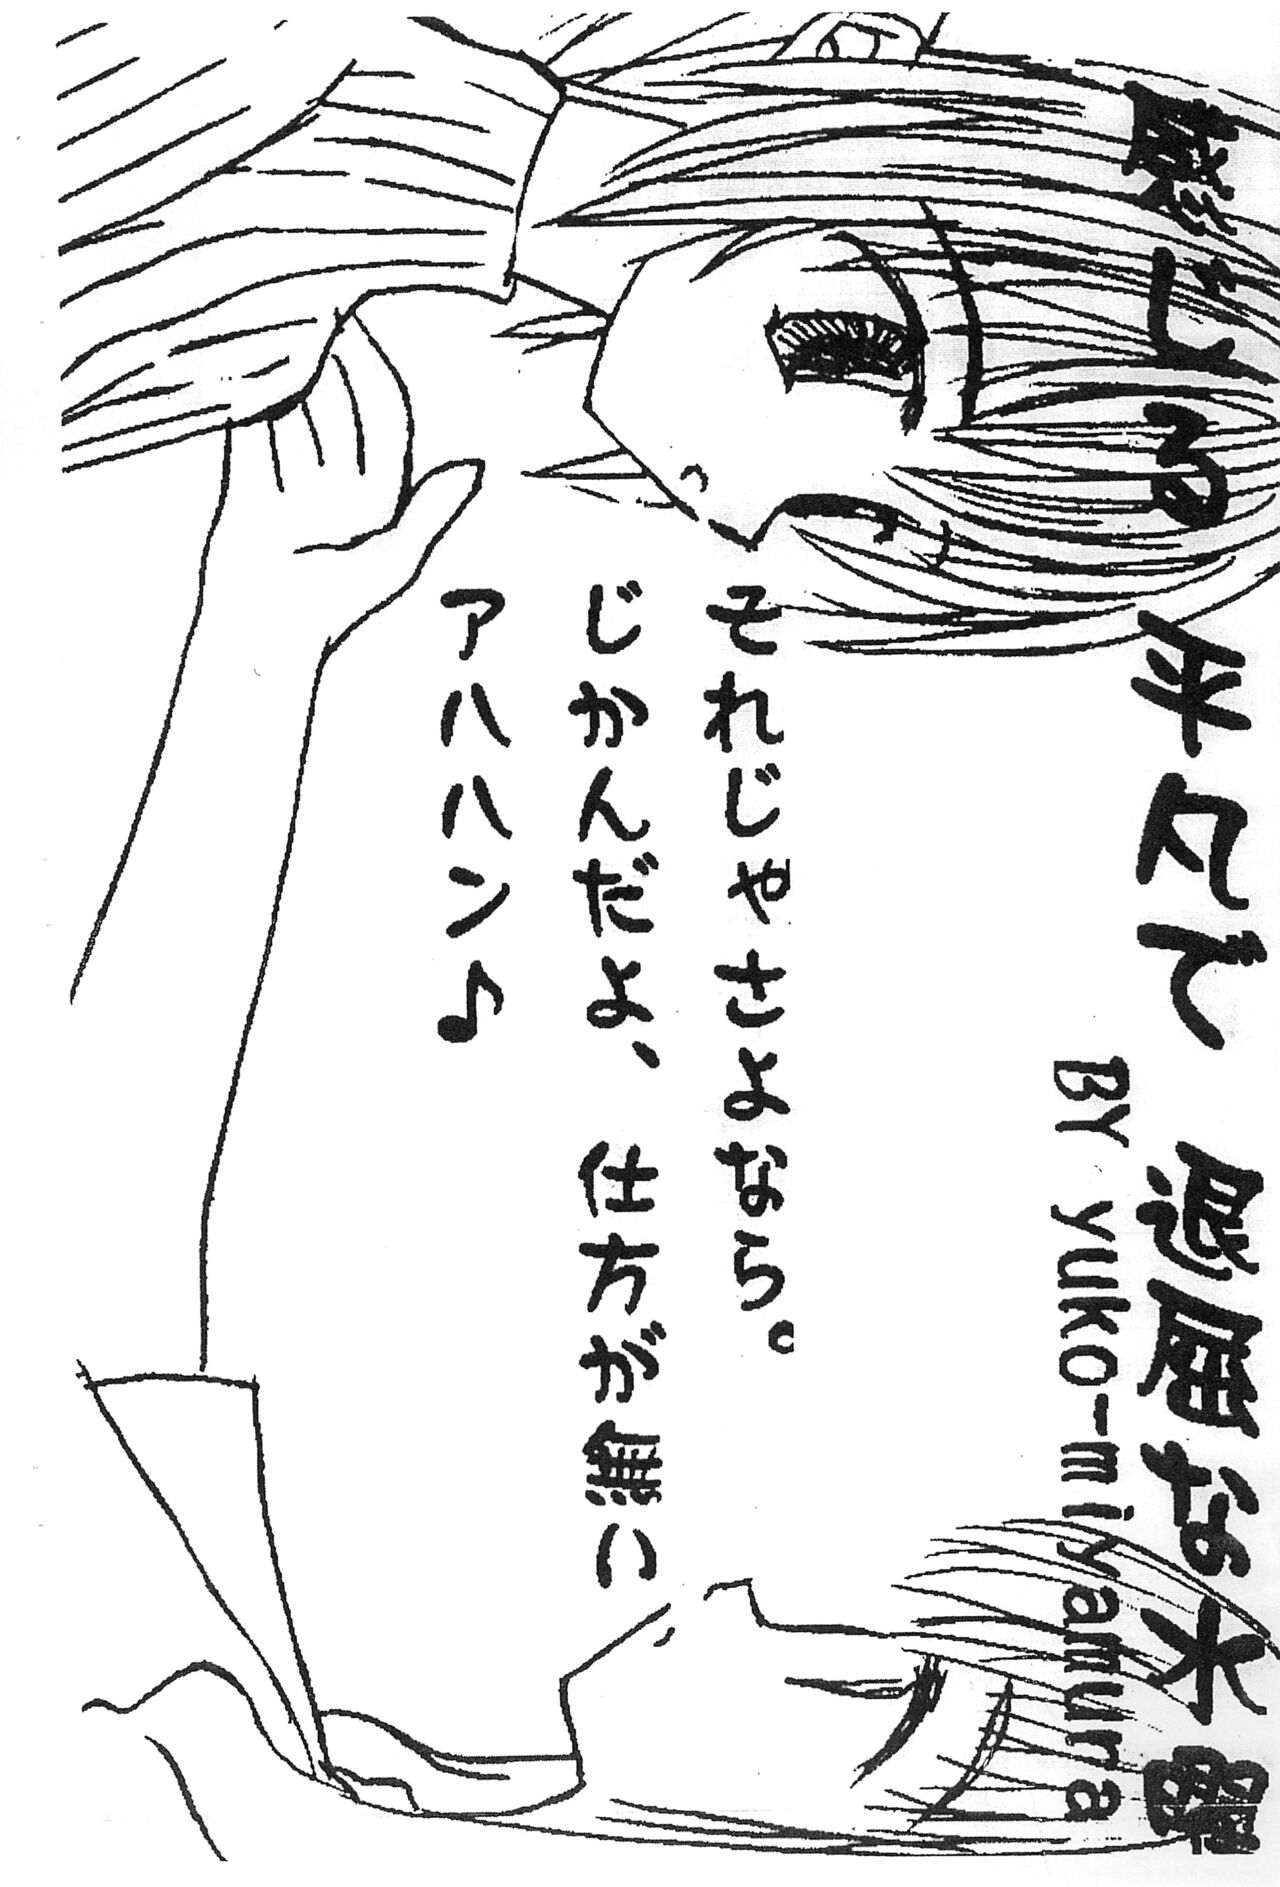 感じる 平凡で 退屈な水曜
BY yuko-miyamura
それじゃさよなら。
じかんだよ、 仕方が無い
アハハン♪